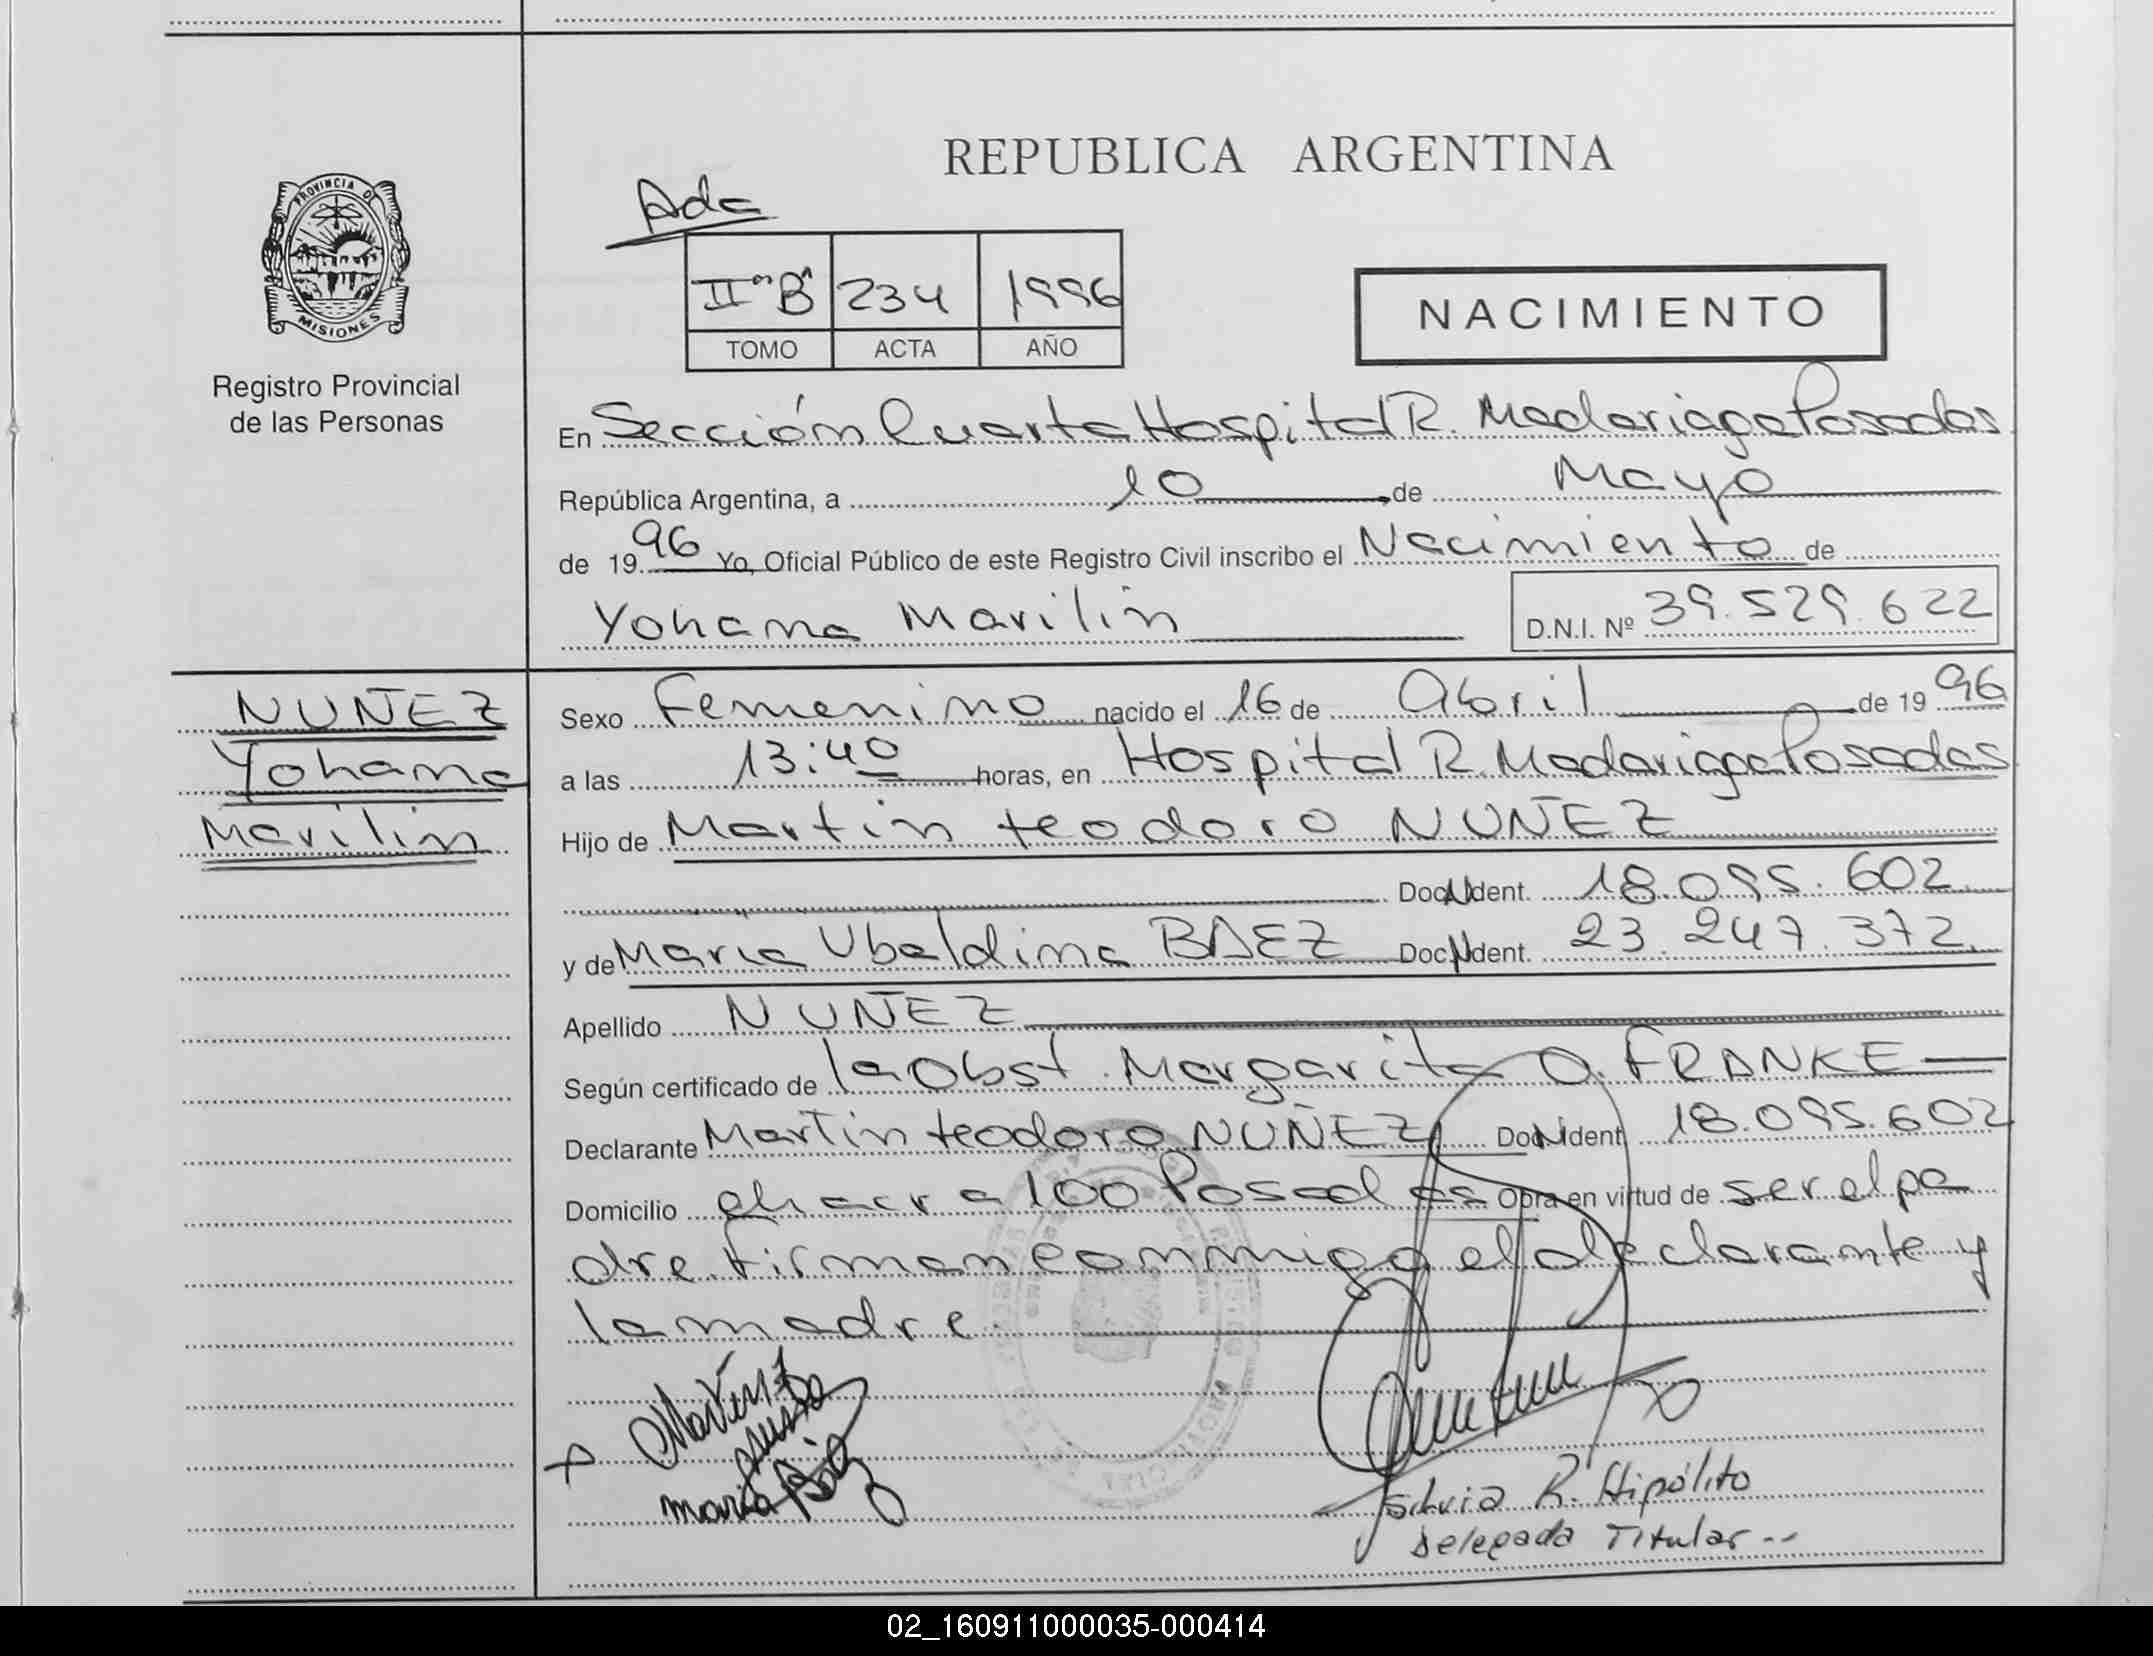 REPUBLICA ARGENTINA
PROVINCIA DE
MISIONES
Registro Provincial
de las Personas
Ada
IIº "B" 234 1996
TOMO ACTA AÑO
NACIMIENTO
En Sección Cuarta Hospital R. Madariaga Posadas
República Argentina, a 10 de Mayo
de 1996 Yo, Oficial Público de este Registro Civil inscribo el Nacimiento de
Yohana Marilin D.N.I. Nº 39.529.622
NUÑEZ
Yohana
Marilin
Sexo Femenino nacido el 16 de Abril de 1996
a las 13:40 horas, en Hospital R. Madariaga Posadas
Hijo de Martin Teodoro NUÑEZ
Doc. Ident. 18.095.602
y de Maria Ubaldina BAEZ Doc. Ident. 23.247.372
Apellido NUÑEZ
Según certificado de la Obst. Margarita O. FRANKE
Declarante Martin Teodoro NUÑEZ Doc. Ident. 18.095.602
Domicilio chacra 100 Posadas Obra en virtud de ser el pa
dre firman conmigo el declarante y
la madre
maria
Silvia R. Hipólito
Delegada Titular--
02_160911000035-000414